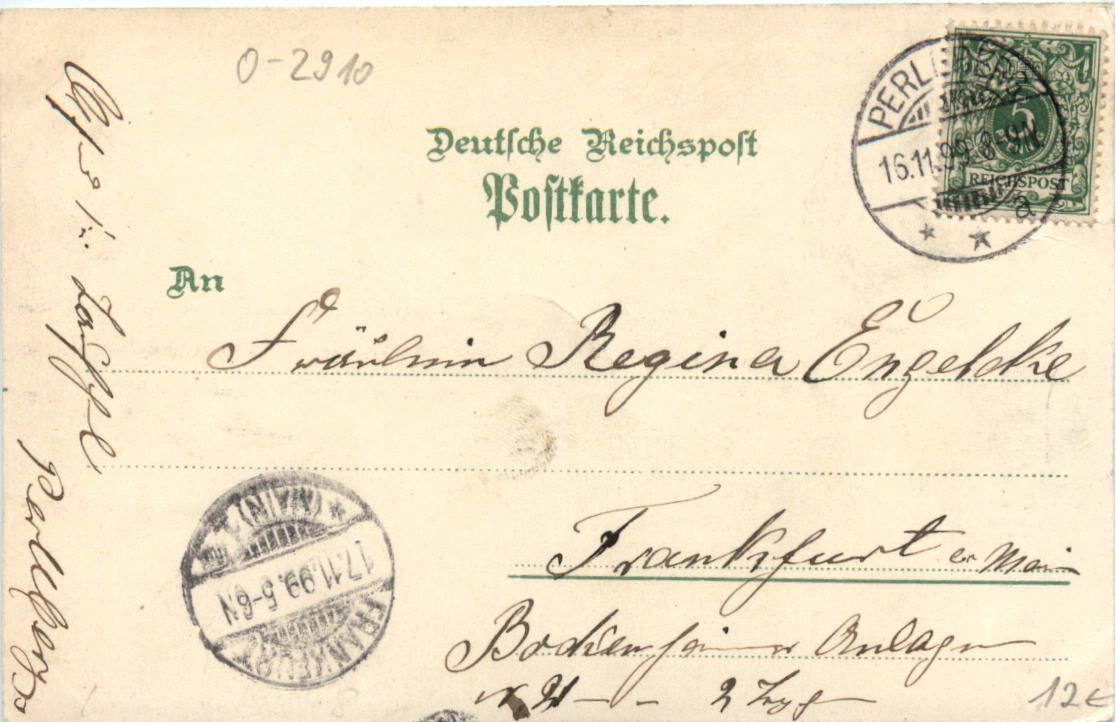 O-2910
Deutsche Reichspost
Postkarte.
PERLEBERG
16.11.99 8-9N
a
5
REICHSPOST
An
Fräulein Regina Engeldke
Frankfurt a. Main
Bockenheimer Anlage
2
FRANKFURT
(MAIN)
17.11.99.5-6N
Perleberg
12€